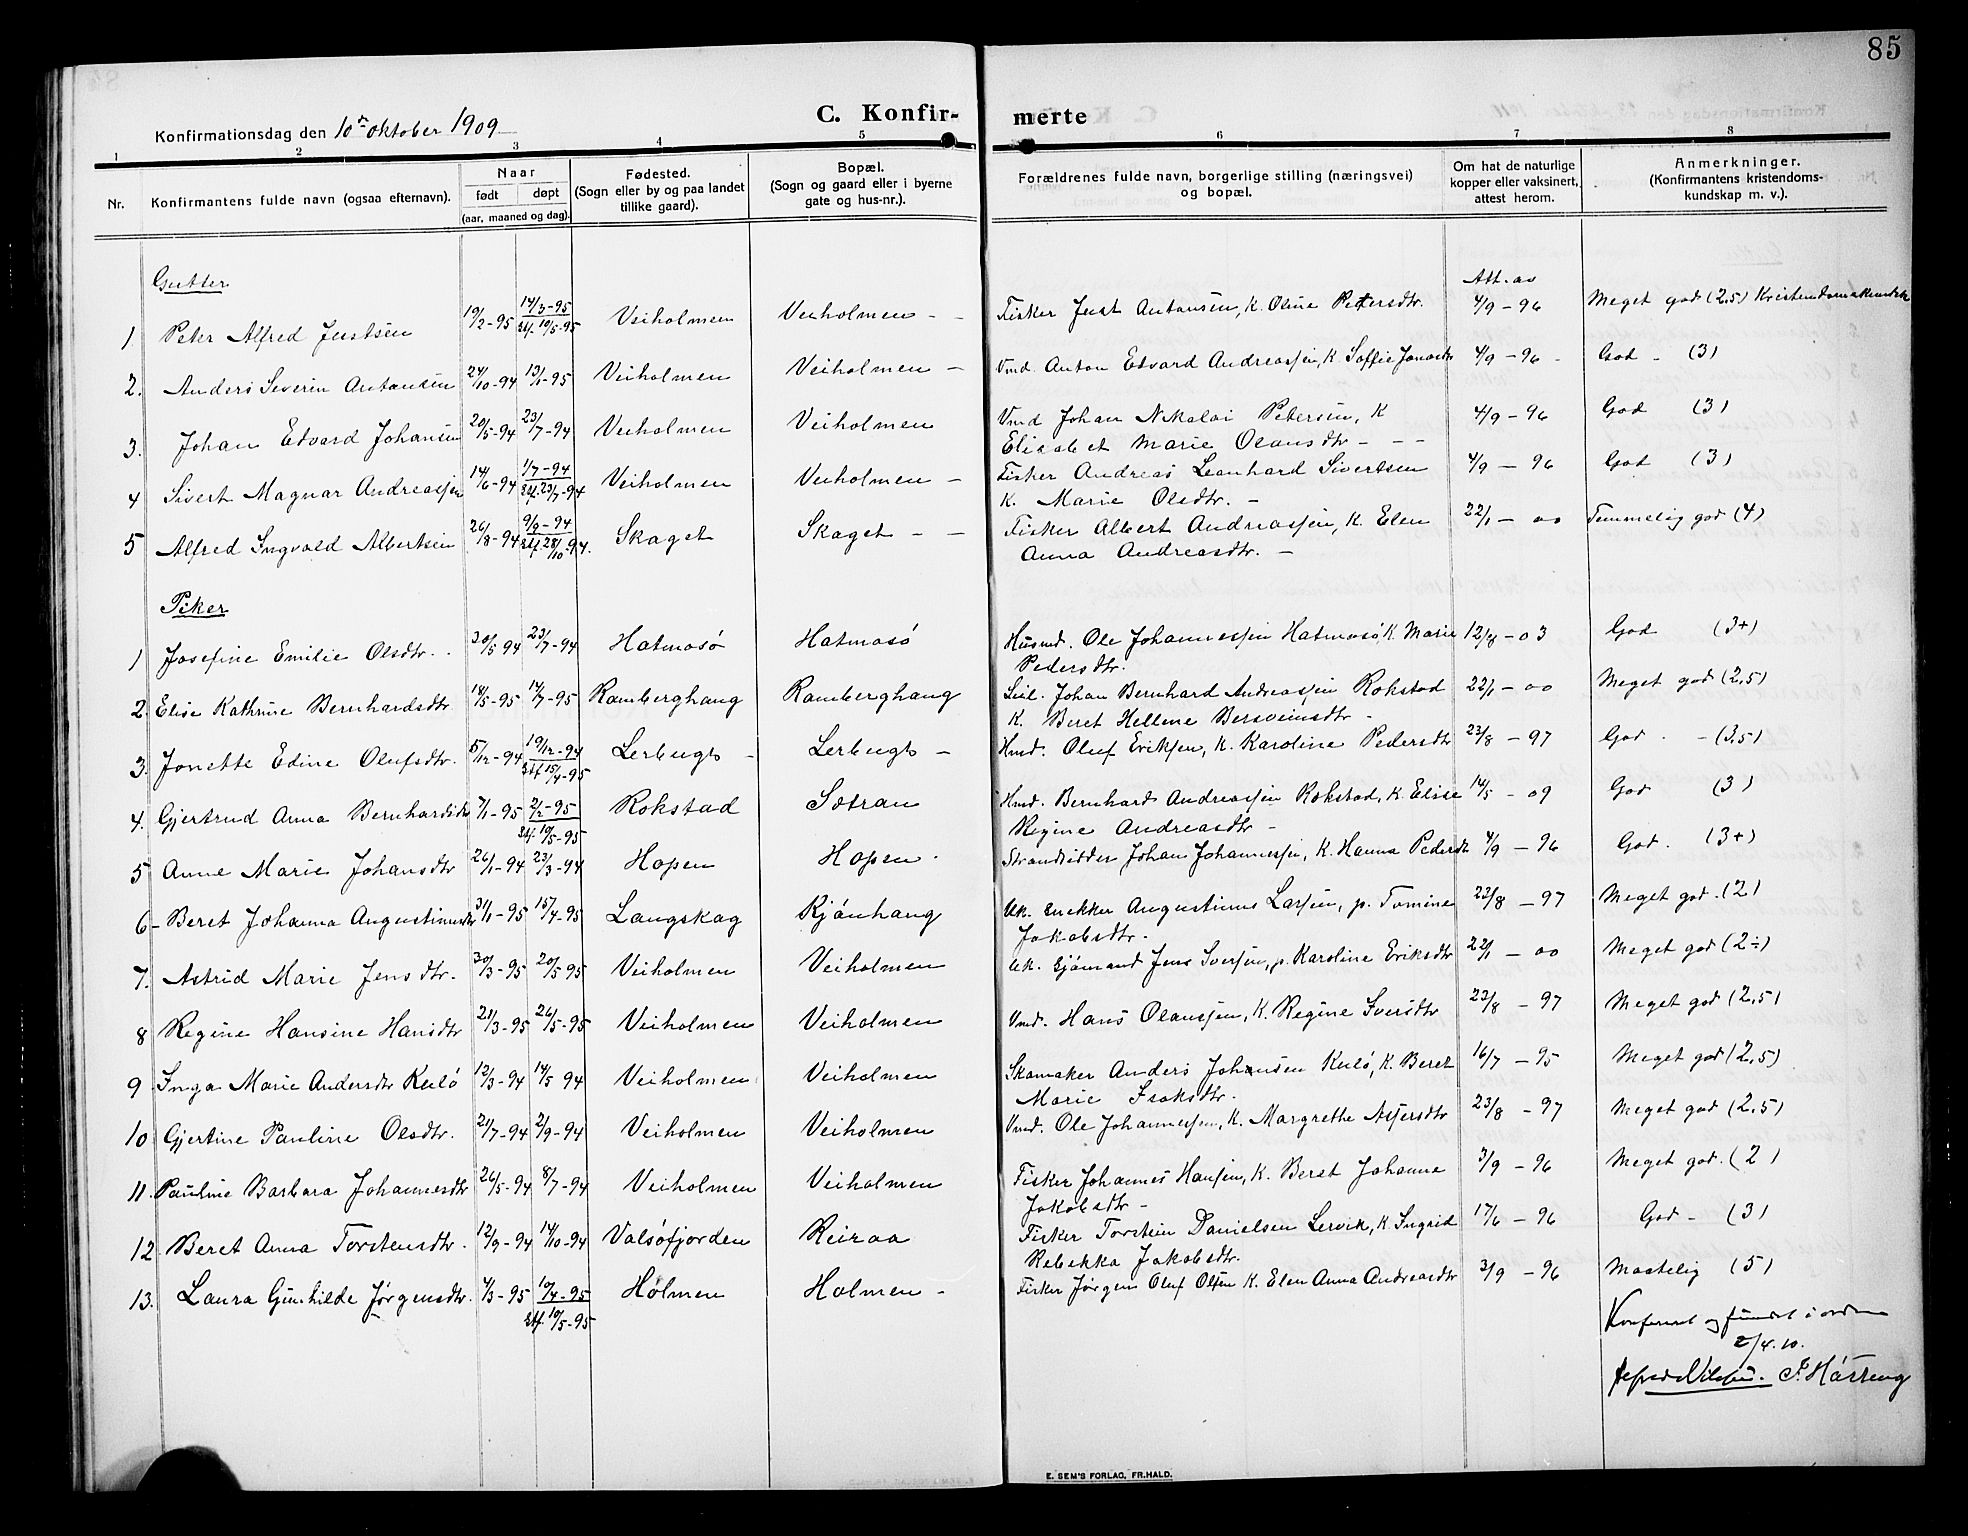 85
Konfirmationsdag den 10de oktober 1909
C. Konfirmerte
1 2 3 4 5 6 7 8
Nr. Konfirmantens fulde navn (ogsaa efternavn). Naar født døpt (aar, maaned og dag). Fødested. (Sogn eller by og paa landet tillike gaard). Bopæl. (Sogn og gaard eller i byerne gate og hus-nr.). Forældrenes fulde navn, borgerlige stilling (næringsvei) og bopæl. Om hat de naturlige kopper eller vaksinert, attest herom. Anmerkninger. (Konfirmantens kristendoms-kundskap m. v.).
Gutter
Att. av
1 Peter Alfred Justsen 19/2-95 14/3-95 Stf. 19/5-95 Veiholmen Veiholmen - - Fisker Just Antonsen, K. Oline Petersdtr. 4/9-96 Meget god (2,5) Kristendomskundsk
2. Anders Severin Antonsen 24/10-94 13/1-95 Veiholmen Veiholmen - Vmd. Anton Edvard Andreassen, K. Soffie Jonasdtr 4/9-96 - God - (3)
3. Johan Edvard Johansen 20/5-94 23/7-94 Veiholmen Veiholmen Vmd Johan Nikolai Petersen, K 4/9-96 God (3)
Elisabet Marie Olansdtr - - -
4 Sivert Magnar Andreassen 14/6-94 1/7-94 Stf. 23/7-94 Veiholmen Veiholmen - Fisker Andreas Leonhard Sivertsen 4/9-96 God (3)
K. Marie Olsdtr. -
5 Alfred Ingvald Albertsen 26/8-94 9/9-94 Stf. 28/10-94. Skaget Skaget - - Fisker Albert Andreassen, K. Elen 22/1-00 Temmelig god (4)
Anna Andreasdtr. -
Piker
1 Josefine Emilie Olsdtr. 30/5 94 23/7-94 Hatmosø Hatmosø Husmd. Ole Johannessen Hatmosø K. Marie 12/8-03 God (3+)
Pedersdtr.
2. Elise Kathrine Bernhardsdtr 18/5-95 14/7-95 Ramberghaug Ramberghaug Seil. Johan Bernhard Andreassen Rokstad 22/1-00 Meget god (2,5)
K. Beret Hellene Bersveinsdtr -
3. Jonette Edine Olufsdtr. 5/12-94 19/12-94 Stf 15/4-95 Lerbugt - Lerbugt - Hmd. Oluf Eriksen, K. Karoline Pedersdtr 23/8-97 God - (3,5)
4. Gjertrud Anna Bernhardsdtr 7/1-95 2/2-95 Stf. 19/5-95 Rokstad Sætran Hmd. Bernhard Andreassen Rokstad, K. Elise 14/5-09 God (3)
Regine Andreasdtr -
5 Anne Marie Johansdtr 26/1-94 23/3-94 Hopen Hopen - Strandsidder Johan Johannessen, K. Hanna Pedersdtr 4/9-96 God. (3+)
6- Beret Johanna Augustinusdtr 31/1-95 15/4-95 Langskag Kjønhaug Uk. snekker Augustinus Larsen, p. Tomine 23/8-97 Meget god. (2)
Jakobsdtr.
7. Astrid Marie Jensdtr. 30/3-95 20/5 95 Veiholmen Veiholmen Uk. Sjømand Jens Iversen, p. Karoline Eriksdtr 22/1-00 Meget god (2÷)
8 Regine Hansine Hansdtr 21/3-95 26/5-95 Veiholmen Veiholmen Vmd. Hans Olaussen, K. Regine Iversdtr 23/8-97 Meget god (2,5)
9 Inga Marie Andersdtr Keilø 12/3-94 14/5 94 Veiholmen Veiholmen Skomaker Anders Johnsen Keilø, K. Beret 16/7-95 Meget god (2,5)
Marie Isaksdtr.
10 Gjertine Pauline Olsdtr. 21/7-94 2/9-94 Veiholmen Veiholmen Vmd. Ole Johannessen, K. Margrethe Asjersdtr 23/8-97 Meget god (2,5)
11. Pauline Barbara Johannesdtr 26/5-94 8/7-94 Veiholmen Veiholmen Fisker Johannes Hansen, K. Beret Johanna 3/9-96 Meget god. (2)
Jakobsdtr -
12 Beret Anna Torstensdtr. 12/9-94 14/10-94 Valsøfjorden Reiraa Fisker Torstein Danielsen Lervik, K. Ingrid 17/6-96 God - (3)
Rebekka Jakobsdtr.
13. Laura Gunhilde Jørgensdtr. 4/3-95 10/4-95 Stf. 19/5-95 Holmen Holmen - Fisker Jørgen Oluf Olsen K. Elen Anna Andreasdtr 3/9-96 Maatelig (5)
Konferert og fundet i orden
2/4.10.
Alfred Nilsen. J. Hårseng
E. SEM'S FORLAG, FR.HALD.